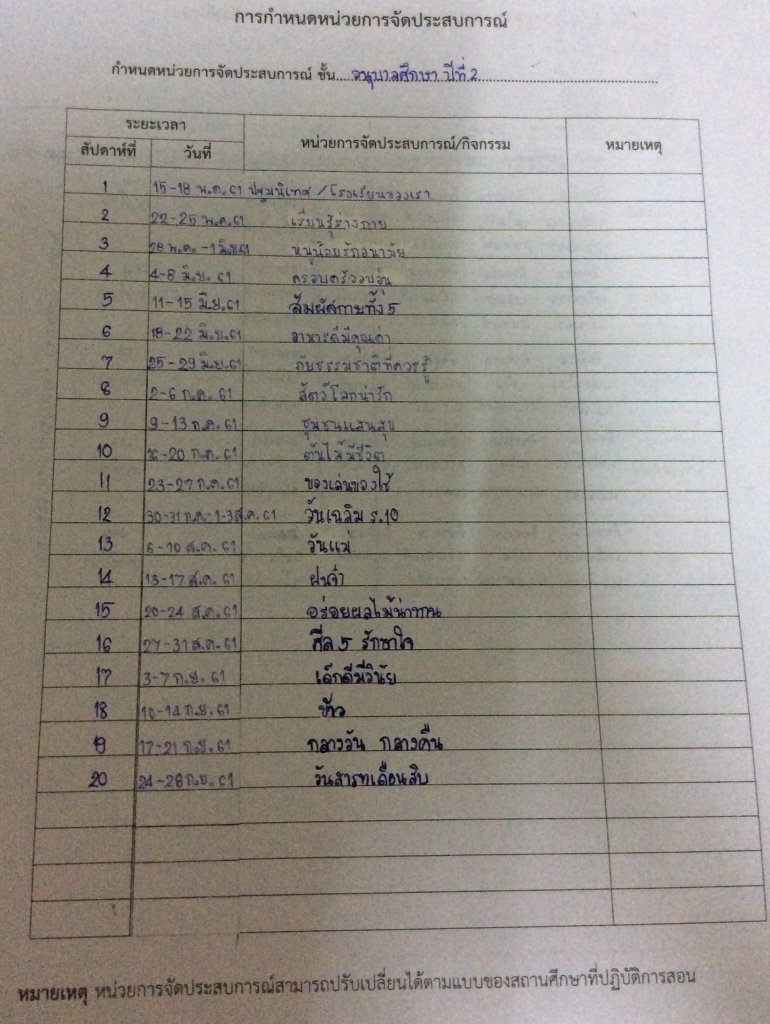 การกำหนดหน่วยการจัดประสบการณ์
กำหนดหน่วยการจัดประสบการณ์ ชั้น....อนุบาลศึกษา ปีที่ 2....
ระยะเวลา
สัปดาห์ที่ วันที่ หน่วยการจัดประสบการณ์/กิจกรรม หมายเหตุ
1 15-18 พ.ค. 61 ปฐมนิเทศ / โรงเรียนของเรา
2 22-25 พ.ค. 61 เรียนรู้ร่างกาย
3 28 พ.ค. - 1 มิ.ย. 61 หนูน้อยรักอนามัย
4 4-8 มิ.ย. 61 ครอบครัวอบอุ่น
5 11-15 มิ.ย. 61 สัมผัสกายทั้ง 5
6 18-22 มิ.ย. 61 อาหารดีมีคุณค่า
7 25-29 มิ.ย. 61 ภัยธรรมชาติที่ควรรู้
8 2-6 ก.ค. 61 สัตว์โลกน่ารัก
9 9-13 ก.ค. 61 ชุมชนแสนสุข
10 16-20 ก.ค. 61 ต้นไม้มีชีวิต
11 23-27 ก.ค. 61 ของเล่นของใช้
12 30-31 ก.ค. - 1-3 ส.ค. 61 วันเฉลิม ร.10
13 6-10 ส.ค. 61 วันแม่
14 13-17 ส.ค. 61 ฝนจ๋า
15 20-24 ส.ค. 61 อร่อยผลไม้น่าทาน
16 27-31 ส.ค. 61 ศีล 5 รักษาใจ
17 3-7 ก.ย. 61 เด็กดีมีวินัย
18 10-14 ก.ย. 61 ข้าว
19 17-21 ก.ย. 61 กลางวัน กลางคืน
20 24-28 ก.ย. 61 วันสารทเดือนสิบ
หมายเหตุ หน่วยการจัดประสบการณ์สามารถปรับเปลี่ยนได้ตามแบบของสถานศึกษาที่ปฏิบัติการสอน